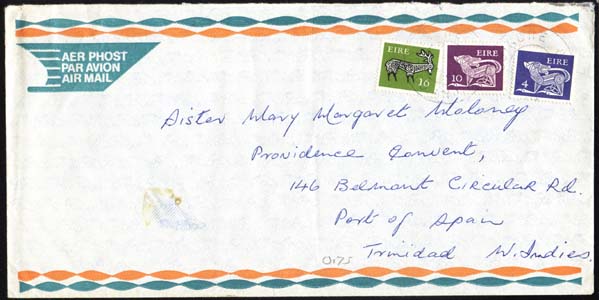 AER PHOST
PAR AVION
AIR MAIL
EIRE
16
EIRE
10
EIRE
4
Sister Mary Margaret Maloney
Providence Convent,
146 Belmont Circular Rd.
Port of Spain
Trinidad W. Indies.
0175